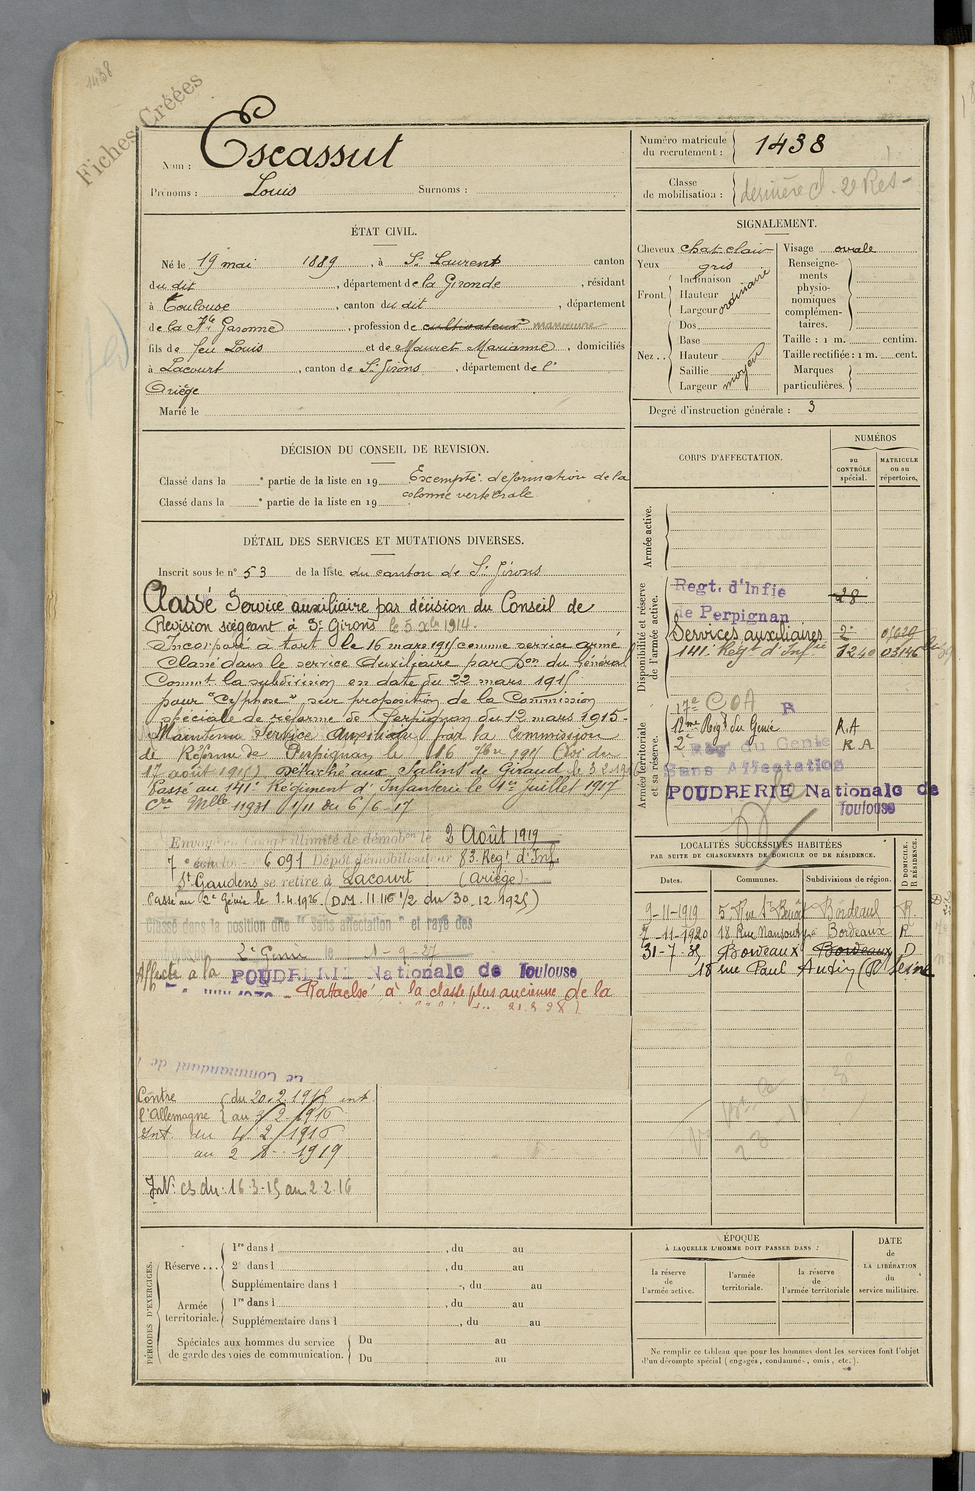 1438
Fiches Créées
Nom : Escassut
Prénoms : Louis Surnoms :
Numéro matricule du recrutement : 1438
Classe de mobilisation : dernière cl. 2e Res -
ÉTAT CIVIL.
Né le 19 mai 1889, à St Laurent canton
du dit, département de la Gironde, résidant
à Toulouse, canton du dit, département
de la Hte Garonne, profession de cultivateur manœuvre
fils de feu Louis et de Mauret Marianne, domiciliés
à Lacourt, canton de St Girons, département de l'
Ariège
Marié le
SIGNALEMENT.
Cheveux chat-clair
Yeux gris
Front : Inclinaison
Hauteur
Largeur
ordinaire
Nez : Dos
Base
Hauteur
Saillie
Largeur
moyen
Visage ovale
Renseignements physionomiques complémentaires.
Taille : 1 m. centim.
Taille rectifiée : 1 m. cent.
Marques particulières.
Degré d'instruction générale : 3
DÉCISION DU CONSEIL DE REVISION.
Classé dans la e partie de la liste en 19 Exempté. déformation de la
Classé dans la e partie de la liste en 19 colonne vertébrale
DÉTAIL DES SERVICES ET MUTATIONS DIVERSES.
Inscrit sous le n° 53 de la liste du canton de St Girons
Classé Service auxiliaire par décision du Conseil de
Revision siégeant à St Girons le 5 Xbre 1914.
Incorporé à tort le 16 mars 1915 comme service armé
Classé dans le service Auxiliaire par Don du Général
Commt la subdivision en date du 22 mars 1915
pour "Cyphose" sur proposition de la Commission
spéciale de réforme de Perpignan du 12 mars 1915-
Maintenu Service Auxiliaire par la Commission
de Réforme de Perpignan le 16 7bre 1915 (Loi du
17 août 1915) Détaché aux Salins de Giraud le 3 2 19
Passé au 141e Régiment d'Infanterie le 1er juillet 1917
Cre Mlle 11931 1/11 du 6/6-17
Envoyé en congé illimité de démobon le 2 Août 1919
7e 6091 Dépôt démobilisateur 83. Regt d'Inf
St Gaudens se retire à Lacourt (Ariège)
Passé au 2e Génie le 1.4.1926 (D.M. 11.116 1/2 du 30.12.1925)
Classé dans la position dite "Sans affectation" et rayé des
2e Génie le 1-9-27
Affecté à la POUDRERIE Nationale de Toulouse
Rattaché à la classe plus ancienne de la
Le Commandant de
Contre l'Allemagne du 20.2.1915 int
au 3/2/1916
Int. du 4.2/1916
au 2 8 1919
Int. cs du 16-3-15 au 2 2.16
CORPS D'AFFECTATION.
NUMÉROS
au CONTRÔLE spécial.
MATRICULE ou au répertoire.
Armée active.
Disponibilité et réserve de l'armée active.
Regt. d'Infie
de Perpignan 28
Services auxiliaires 2e
141e Regt d'Infrie 1240 03146
Armée territoriale et sa réserve.
17e COA R
12me Regt du Genie R.A
2e Reg du Genie R.A
Sans Affectation
POUDRERIE Nationale de
Toulouse
LOCALITÉS SUCCESSIVES HABITÉES
PAR SUITE DE CHANGEMENTS DE DOMICILE OU DE RÉSIDENCE.
D DOMICILE. R RÉSIDENCE.
Dates. Communes. Subdivisions de région.
9-11-1919 5, Rue St Benoît Bordeaux R.
7-11-1920 18. Rue Mansour Bordeaux R
31-7-35 Bordeaux Bordeaux D
18 rue Paul Seine
PÉRIODES D'EXERCICES.
Réserve... 1re dans l , du au
2e dans l , du au
Supplémentaire dans l , du au
Armée territoriale. 1re dans l , du au
Supplémentaire dans l , du au
Spéciales aux hommes du service de garde des voies de communication. Du au
Du au
ÉPOQUE
À LAQUELLE L'HOMME DOIT PASSER DANS :
la réserve de l'armée active.
l'armée territoriale.
la réserve de l'armée territoriale
DATE de LA LIBÉRATION du service militaire.
Ne remplir ce tableau que pour les hommes dont les services font l'objet
d'un décompte spécial (engagés, condamnés, omis, etc.).